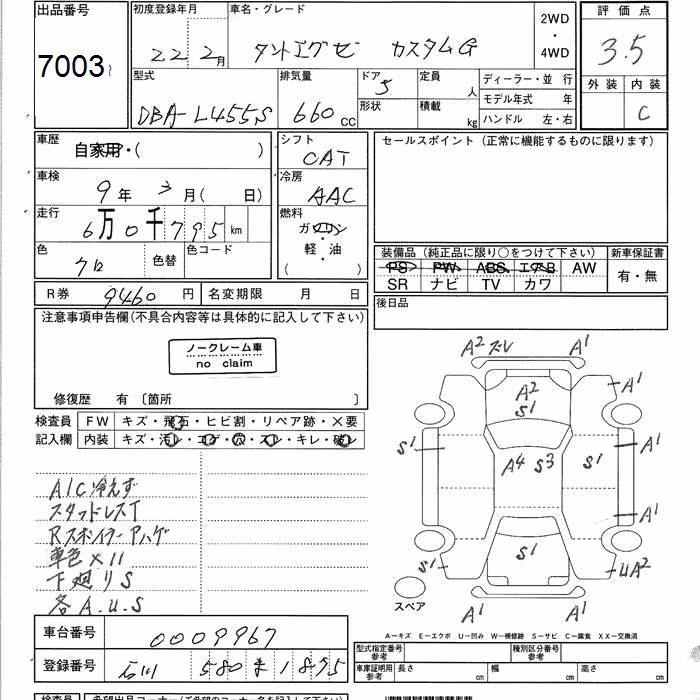 出品番号
7003
初度登録年月
22 2月
車名・グレード
タントエグゼ カスタムG
2WD
・
4WD
評価点
3.5
外装 内装
C
型式
DBA-L455S
排気量
660 cc
ドア
5
形状
定員
人
積載
kg
ディーラー・並 行
モデル年式 年
ハンドル 左・右
車歴
自家用・( )
車検
9年 3月( 日)
走行
6万0千795 km
色
クロ
色替
色コード
シフト
CAT
冷房
AAC
燃料
ガソリン
軽・油
( )
セールスポイント(正常に機能するものに限ります)
装備品(純正品に限り○をつけて下さい)
PS PW ABS エアB AW
SR ナビ TV カワ
新車保証書
有・無
R券 9460 円 名変期限 月 日
後日品
注意事項申告欄(不具合内容等は具体的に記入して下さい)
ノークレーム車
no claim
修復歴 有 〔箇所 〕
検査員
記入欄
FW キズ・飛石・ヒビ割・リペア跡・×要
内装 キズ・汚レ・コゲ・穴・スレ・キレ・破レ
A/C冷えず
スタッドレスT
Rスポイラーアハゲ
車色×11
下廻りS
各A.U.S
A2 ズレ A1
A2
S1
A1
S1
A4 S3
S1
A1
A1
S1
UA2
A1 A1
スペア
A-キズ E-エクボ U-凹み W-補修跡 S-サビ C-腐食 XX-交換済
車台番号 0009967
登録番号 石川 580 ま 1875
型式指定番号
参考
種別区分番号
参考
車庫証明用
参考
長さ cm 幅 cm 高さ cm